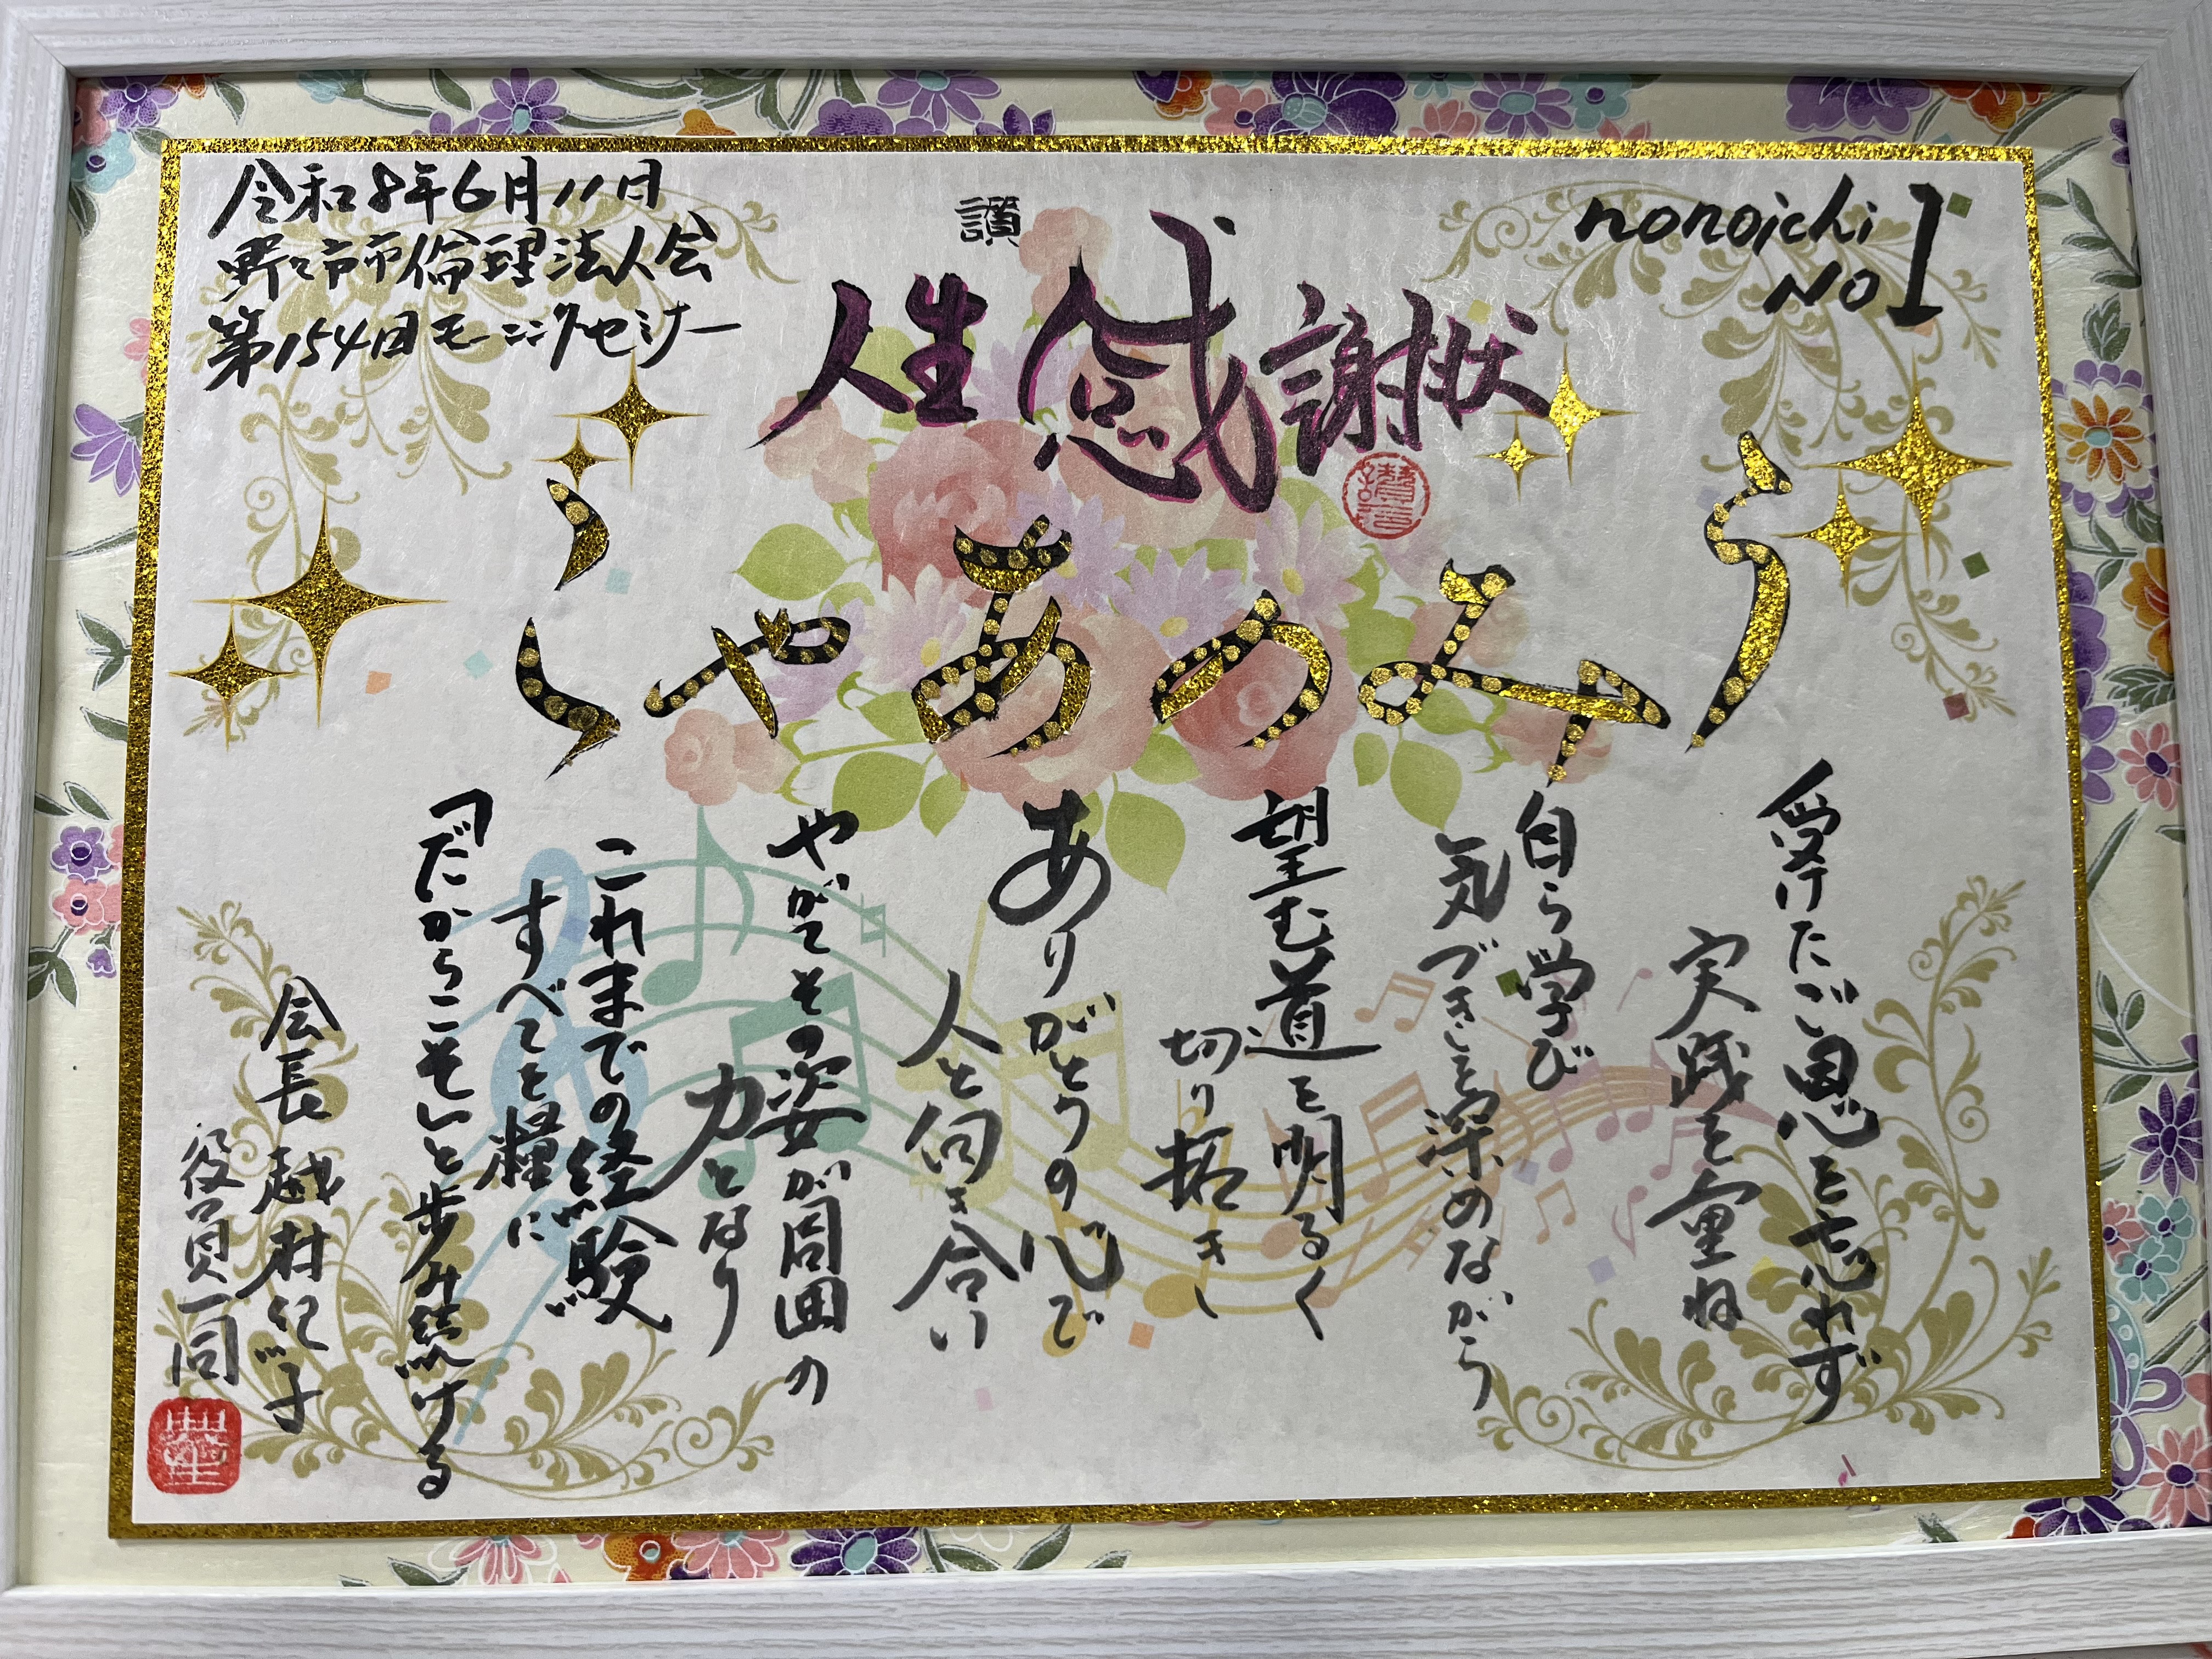 令和8年6月11日
野々市市倫理法人会
第154回モーニングセミナー
讃
nonoichi
No1
人生感謝状
うみのあやこ
受けたご恩を忘れず
実践を重ね
自ら学び
気づきを深めながら
望む道を明るく
切り拓き
ありがとうの心で
人と向き合い
やがてその姿が周囲の
力となり
これまでの経験
すべてを糧に
「だからこそ」と歩み続ける
会長 越村紀子
役員一同